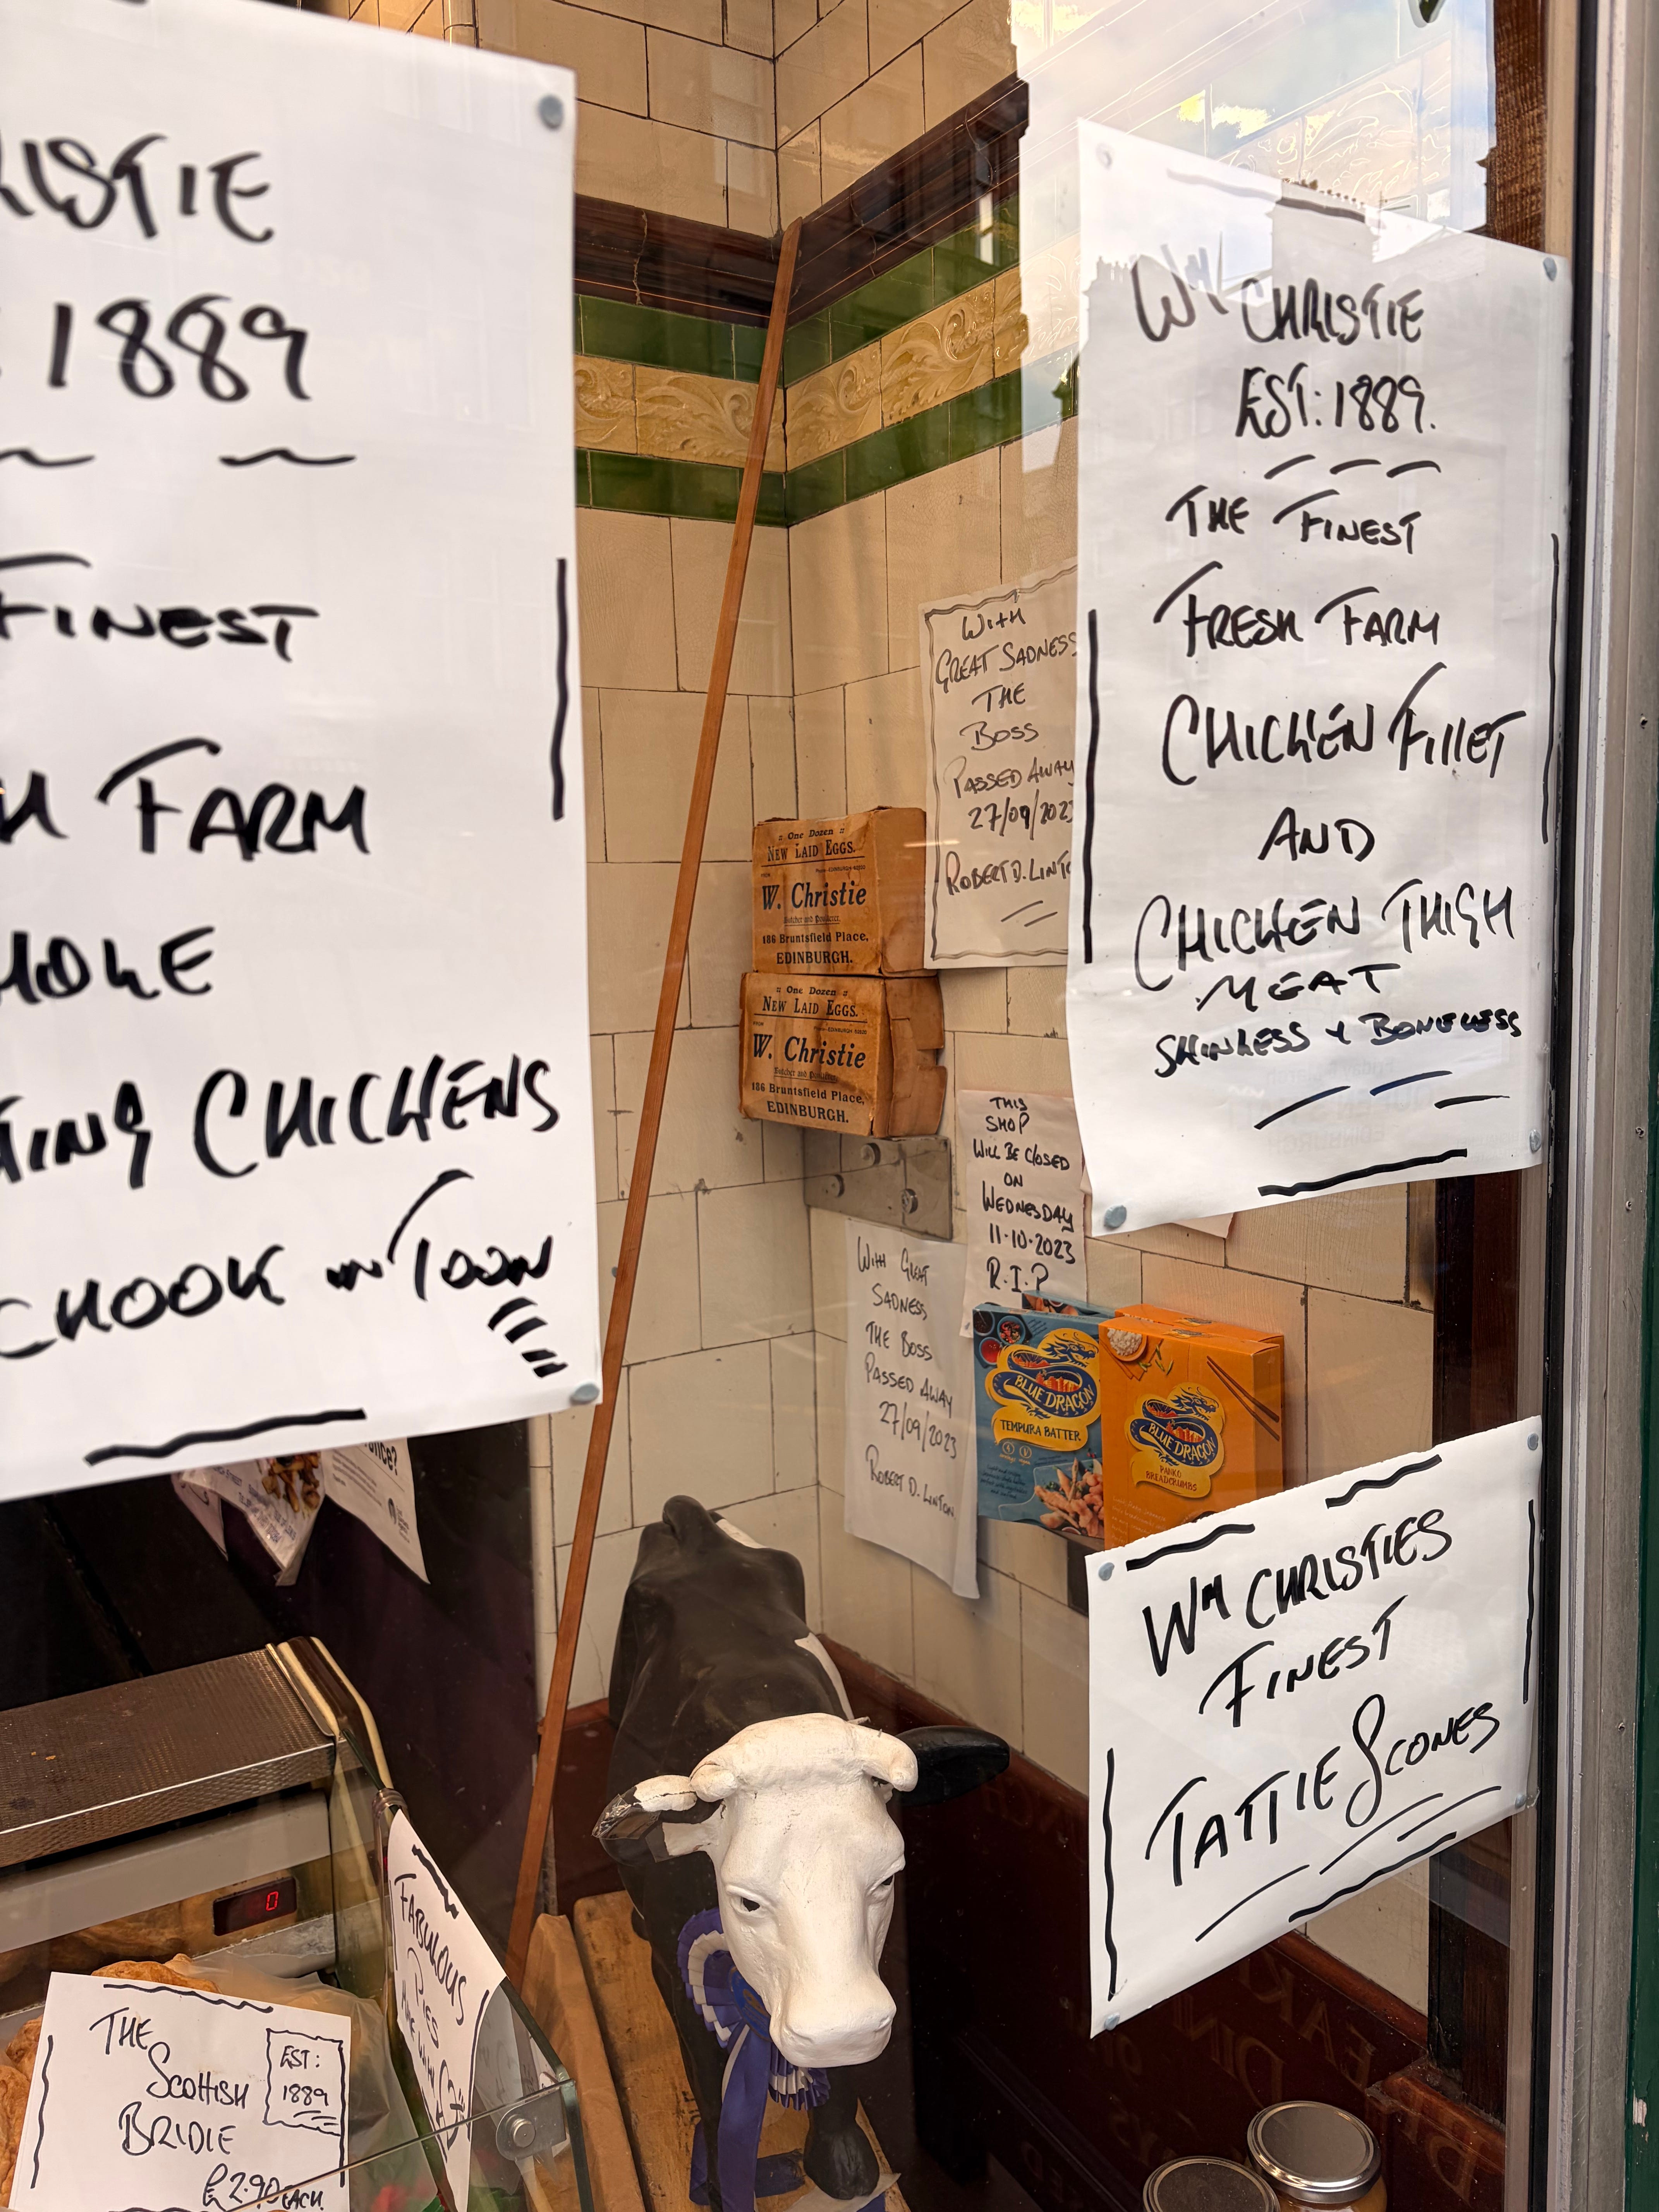 1889
FINEST
FARM
CHICKENS
CHOOK IN TOON
Wᴹ CHRISTIE
EST: 1889.
THE FINEST
FRESH FARM
CHICKEN FILLET
AND
CHICKEN THIGH
MEAT
SKINLESS & BONELESS
WITH
GREAT SADNESS
THE
BOSS
PASSED AWAY
27/09/2023
ROBERT D.
:: One Dozen ::
NEW LAID EGGS.
FROM
W. Christie
Butcher and Poulterer,
186 Bruntsfield Place,
EDINBURGH.
:: One Dozen ::
NEW LAID EGGS.
FROM
W. Christie
Butcher and Poulterer,
186 Bruntsfield Place,
EDINBURGH.
THIS
SHOP
WILL BE CLOSED
ON
WEDNESDAY
11·10·2023
R.I.P
WITH GREAT
SADNESS
THE BOSS
PASSED AWAY
27/09/2023
ROBERT D. LINTON
BLUE DRAGON
TEMPURA BATTER
BLUE DRAGON
PANKO
BREADCRUMBS
Wᴹ CHRISTIES
FINEST
TATTIE SCONES
0
FABULOUS
PIES
THE
SCOTTISH
BRIDIE
£2.90 EACH
EST:
1889